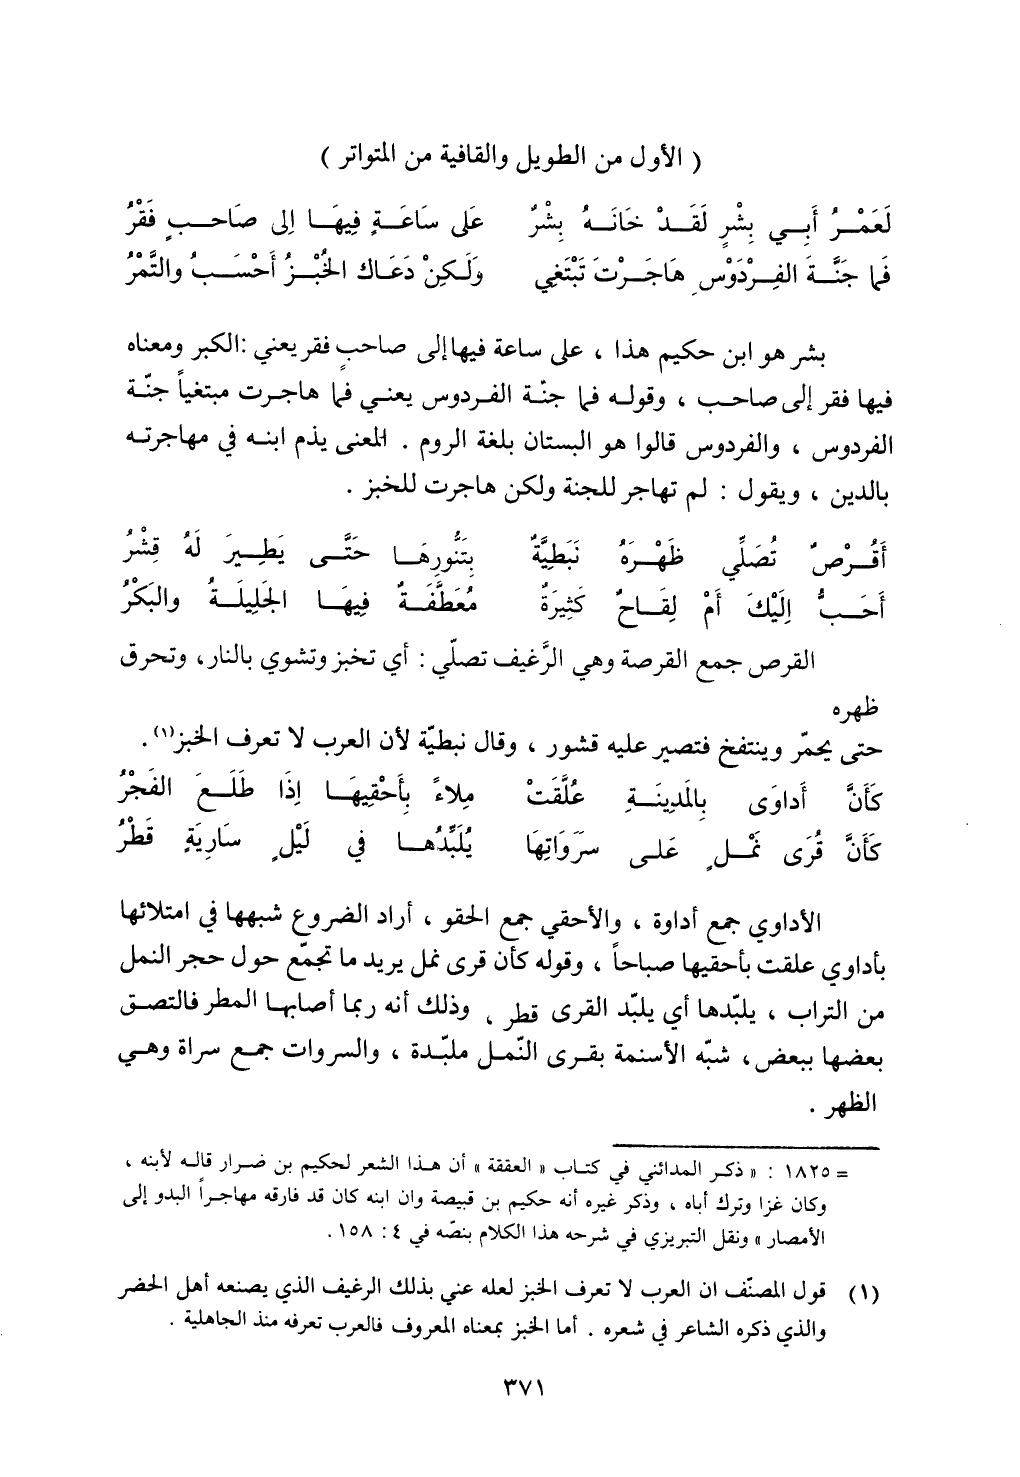 ( الأول من الطويل والقافية من المتواتر )
لَعَمْـرُ أَبـي بِشْرٍ لَقَـدْ خَانَـهُ بِشْرٌ عَلى سَاعَـةٍ فِيهَـا إلى صَاحـبٍ فَقْرُ
فَما جَنَّـةَ الفِـرْدَوْسِ هَاجَـرْتَ تَبْتَغِي وَلَـكِنْ دَعَاكَ الخُبْـزُ أَحْسَـبُ والتَّمْرُ
بشر هو ابن حكيم هذا ، على ساعة فيها إلى صاحبٍ فقر يعني : الكبر ومعناه
فيها فقر إلى صاحـب ، وقولـه فما جنّـة الفـردوس يعنـي فما هاجرت مبتغياً جنّـة
الفردوس ، والفردوس قالوا هو البستان بلغة الروم . المعنى يذم ابنـه في مهاجرتـه
بالدين ، ويقول : لم تهاجر للجنة ولكن هاجرت للخبز .
أَقُـرْصٌ تُصَلِّي ظَهْـرَهُ نَبَطِيَّةٌ بِتَنُّورِهَـا حَتَّـى يَطِيـرَ لَهُ قِشْرُ
أَحَـبُّ إِلَيْكَ أَمْ لِقَـاحٌ كَثِيرَةٌ مُعَطَّفَـةٌ فِيهَـا الجَلِيلَـةُ والبَكْرُ
القرص جمع القرصة وهي الرَّغيف تصلّي : أي تخبز وتشوي بالنار، وتحرق
ظهره
حتى يحمّر وينتفخ فتصير عليه قشور ، وقال نبطيّة لأن العرب لا تعرف الخبز(١) .
كَأَنَّ أَداوَى بِالمَدِينَـةِ عُلَّقَتْ مِلاءً بِأَحْقِيهَـا إذَا طَلَـعَ الفَجْرُ
كَأَنَّ قُرَى نَمْـلٍ عَلـى سَرَوَاتِهَا يُلَبِّدُهـا في لَيْلٍ سَارِيَةٍ قَطْرُ
الأداوي جمع أداوة ، والأحقي جمع الحقو ، أراد الضروع شبهها في امتلائها
بأداوي علقت بأحقيها صباحاً ، وقوله كأن قرى نمل يريد ما تجمّع حول حجر النمل
من التراب ، يلبّدها أي يلبّد القرى قطر ، وذلك أنه ربما أصابها المطر فالتصق
بعضها ببعض، شبّه الأسنمة بقرى النّمـل ملبّدة ، والسروات جمـع سراة وهـي
الظهر .
= ١٨٢٥ : « ذكـر المدائني في كتاب « العققة » أن هـذا الشعر لحكيم بن ضرار قالـه لأبنه ،
وكان غزا وترك أباه ، وذكر غيره أنه حكيم بن قبيصة وان ابنه كان قد فارقه مهاجـراً البدو إلى
الأمصار » ونقل التبريزي في شرحه هذا الكلام بنصّه في ٤ : ١٥٨ .
(١) قول المصنّف ان العرب لا تعرف الخبز لعله عني بذلك الرغيف الذي يصنعه أهل الحضر
والذي ذكره الشاعر في شعره . أما الخبز بمعناه المعروف فالعرب تعرفه منذ الجاهلية .
٣٧١